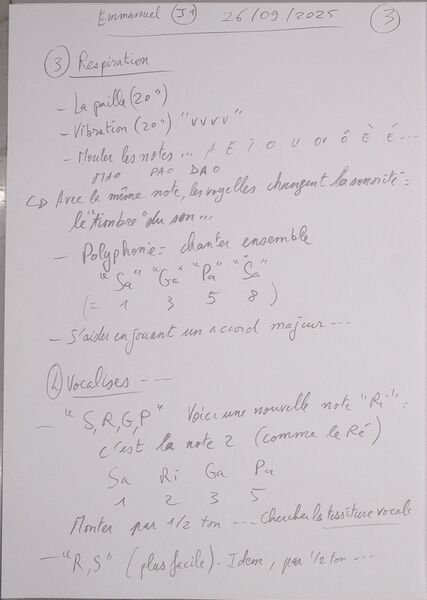 Emmanuel (J1) 26/09/2025 (3)
(3) Respiration
- La paille (20")
- Vibration (20") "vvvv"
- Monter les notes... A E I O U OU Ô È É...
MAO PAO DAO
Avec la même note, les voyelles changent la sonorité =
le "timbre" du son...
- Polyphonie = chanter ensemble
"Sa" "Ga" "Pa" "Sa"
(= 1 3 5 8 )
- S'aider en jouant un accord majeur ---
(4) Vocalises - --
- "S, R, G, P" Voici une nouvelle note "Ri" =
c'est la note 2 (comme le Ré)
Sa Ri Ga Pa
1 2 3 5
Monter par 1/2 ton --- Chercher la tessiture vocale
- "R, S" (plus facile) - Idem, par 1/2 ton ---